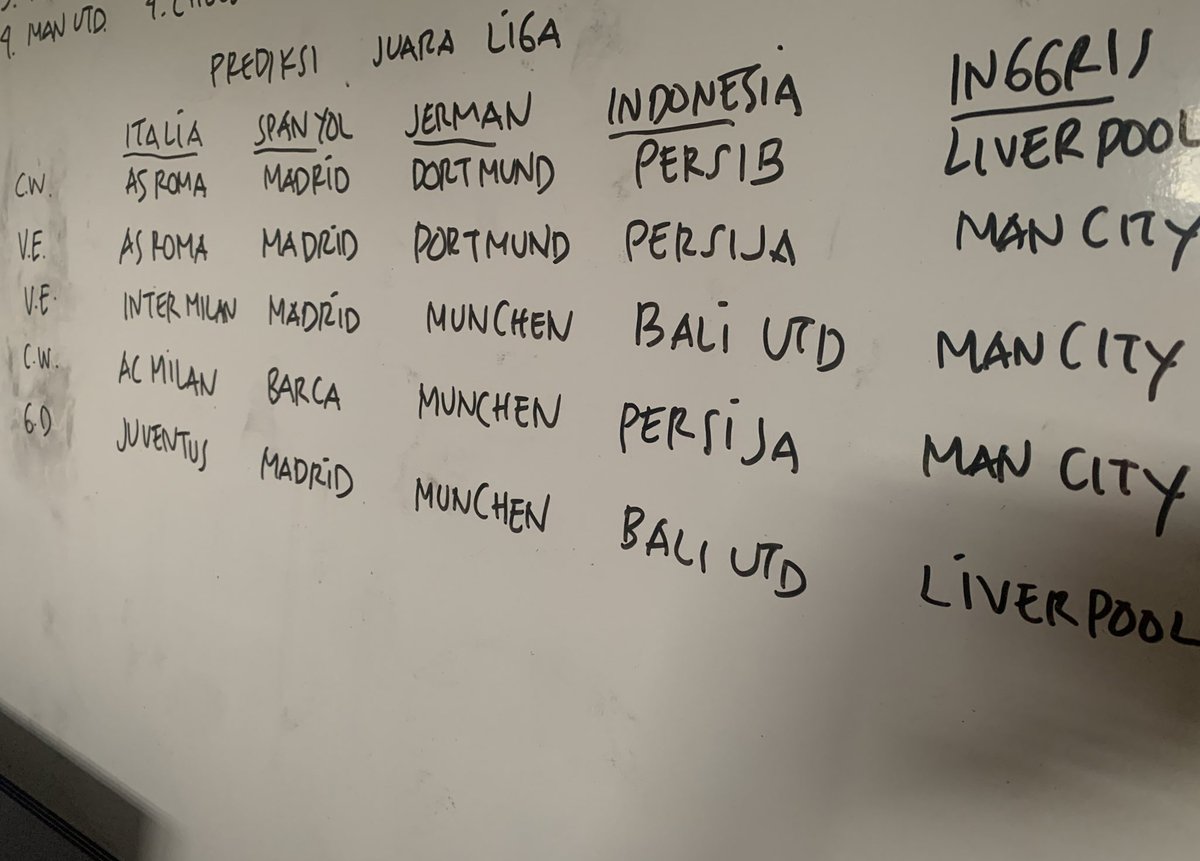 9. MAN UTD.
PREDIKSI JUARA LIGA
ITALIA SPANYOL JERMAN INDONESIA INGGRIS
C.W. AS ROMA MADRID DORTMUND PERSIB LIVERPOOL
V.E. AS ROMA MADRID DORTMUND PERSIJA MAN CITY
V.E. INTER MILAN MADRID MUNCHEN BALI UTD MAN CITY
C.W. AC MILAN BARCA MUNCHEN PERSIJA MAN CITY
G.D JUVENTUS MADRID MUNCHEN BALI UTD LIVERPOOL